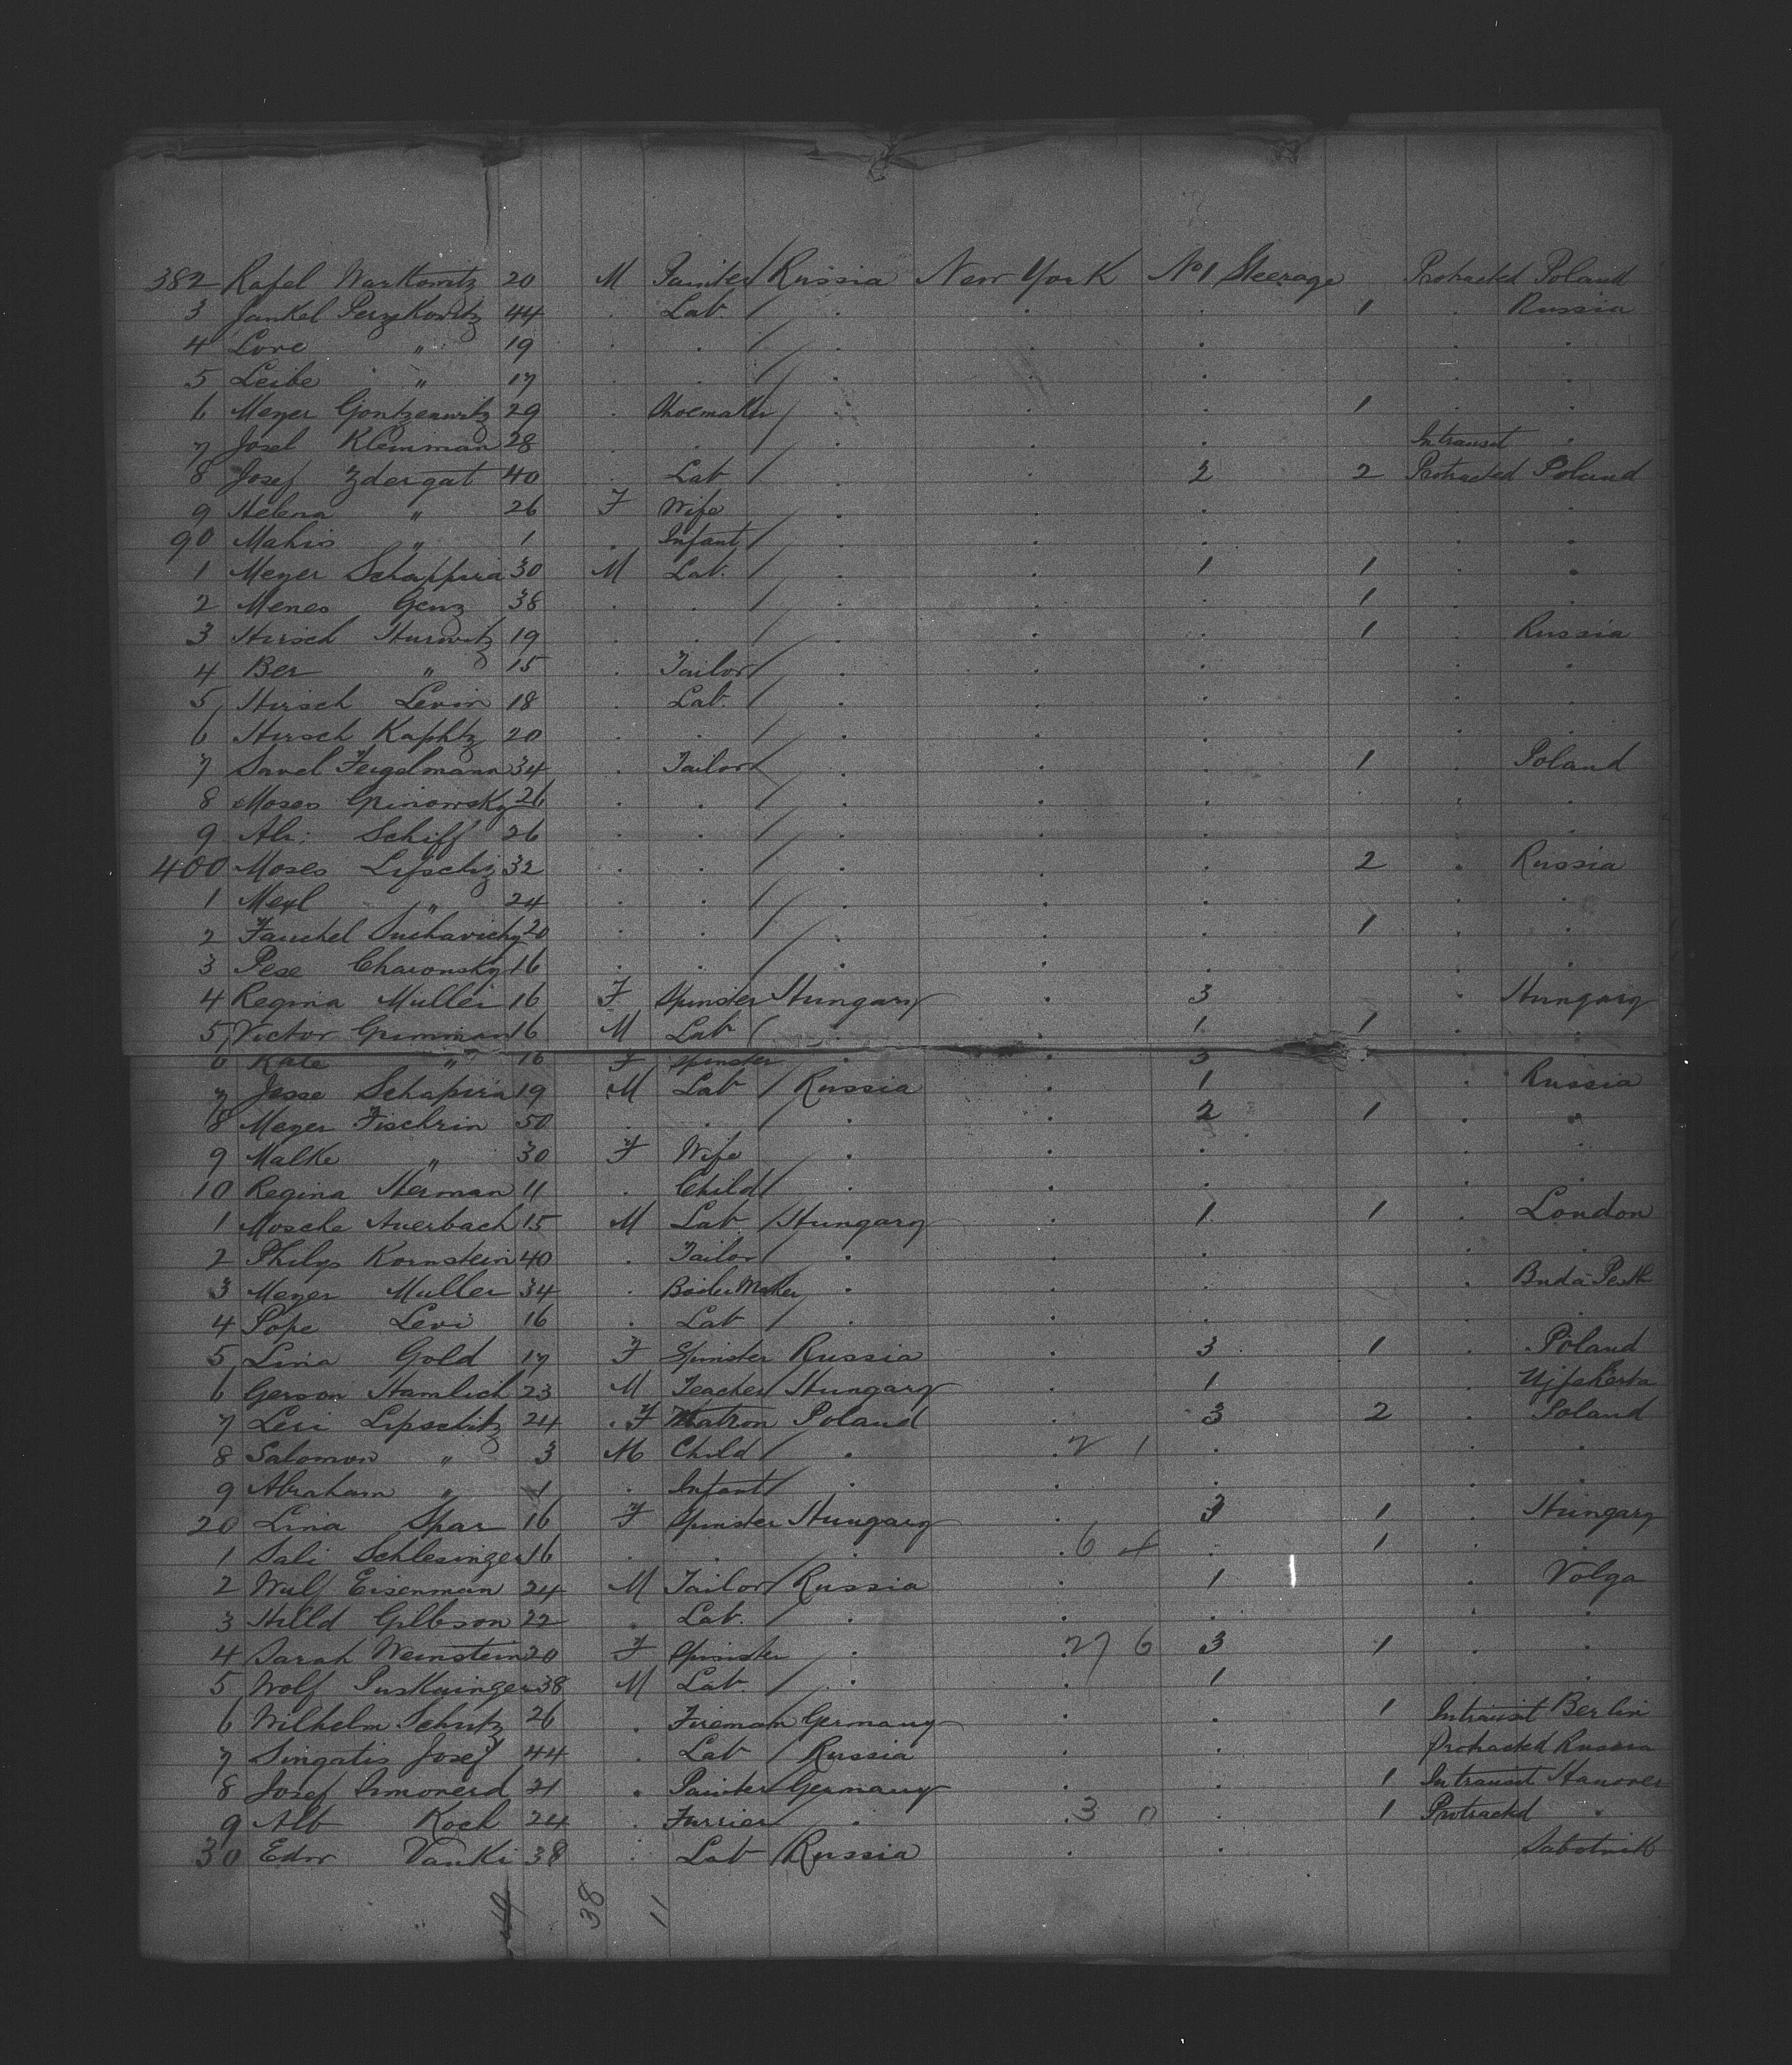 382 Rafel Warkowitz 20 M Painter / Russia New York No 1 Steerage Protracted Poland
3 Jankel Perzekowitz 44 . Lab. / . . . 1 . Russia
4 Lore " 19 . . / . . . . .
5 Leibe " 17 . . / . . . . .
6 Meyer Gontzerwitz 29 . Shoemaker / . . . 1 . .
7 Josel Kleinman 28 . . / . . . Intransit .
8 Josef Zdergat 40 . Lab / . . 2 2 Protracted Poland
9 Helena " 26 F Wife / . . . .
90 Mahis " 1 . Infant / . . . . .
1 Meyer Schappira 30 M Lab. / . . 1 1 . .
2 Menes Genz 38 . . / . . . 1 . .
3 Hirsch Hurwitz 19 . . / . . . 1 . Russia
4 Ber " 15 . Tailor / . . . . .
5 Hirsch Levin 18 . Lab. / . . . . .
6 Hirsch Kaphtz 20 . . / . . . . .
7 Savel Feigelmann 34 . Tailor / . . . 1 . Poland
8 Moses Grinowsky 26 . . / . . . . .
9 Abr: Schiff 26 . . / . . . . .
400 Moses Lipschiz 32 . . / . . . 2 . Russia
1 Mexl " 24 . . / . . . . .
2 Fauchel Suchavichy 20 . . / . . . 1 . .
3 Pese Charonsky 16 . . / . . . . .
4 Regina Muller 16 F Spinster Hungary . 3 . Hungary
5 Victor Grimman 16 M Lab / . . 1 1 . .
6 Kate " 16 F Spinster . . 3 . .
7 Jesse Schapira 19 M Lab / Russia . 1 . Russia
8 Meyer Fischrin 50 . . / . . 2 1 . "
9 Malke " 30 F Wife / . . . . .
10 Regina Herman 11 . Child / . . . . .
1 Mosche Auerbach 15 M Lab / Hungary . 1 1 . London
2 Philip Kornstein 40 . Tailor / . . . . .
3 Meyer Muller 34 . Boiler Maker . . . . Buda-Pesth
4 Pope Levi 16 . Lab / . . . .
5 Lina Gold 17 F Spinster Russia . 3 1 . Poland
6 Gerson Hamlich 23 M Teacher / Hungary . 1 . Ujfekerta
7 Leri Lipschitz 24 . F Matron Poland . 3 2 . Poland
8 Salomon " 3 M Child / . . 2 1 . . .
9 Abraham " 1 . Infant / . . . . .
20 Lina Spar 16 F Spinster Hungary . 3 1 . Hungary
1 Sali Schlesinger 16 . . . . 6 4 . 1 . .
2 Wulf Eisenman 24 M Tailor / Russia . 1 . Volga
3 Hilld Gilbson 22 . Lab. / . . . . .
4 Sarah Weinstein 20 F Spinster . . 27 6 3 1 . .
5 Wolf 38 M Lab. / . . 1 .
6 Wilhelm Schutz 26 . Fireman Germany . . 1 Intransit Berlin
7 Singatis Josef 44 . Lab / Russia . . Protracted Russia
8 Josef Simonerd 21 . Painter Germany . . 1 Intransit Hanover
9 Alb Koch 24 . Furrier / . . 3 0 . 1 Protracted "
30 Edw Vanki 38 . Lab / Russia . . Sabotnik
" 38 11